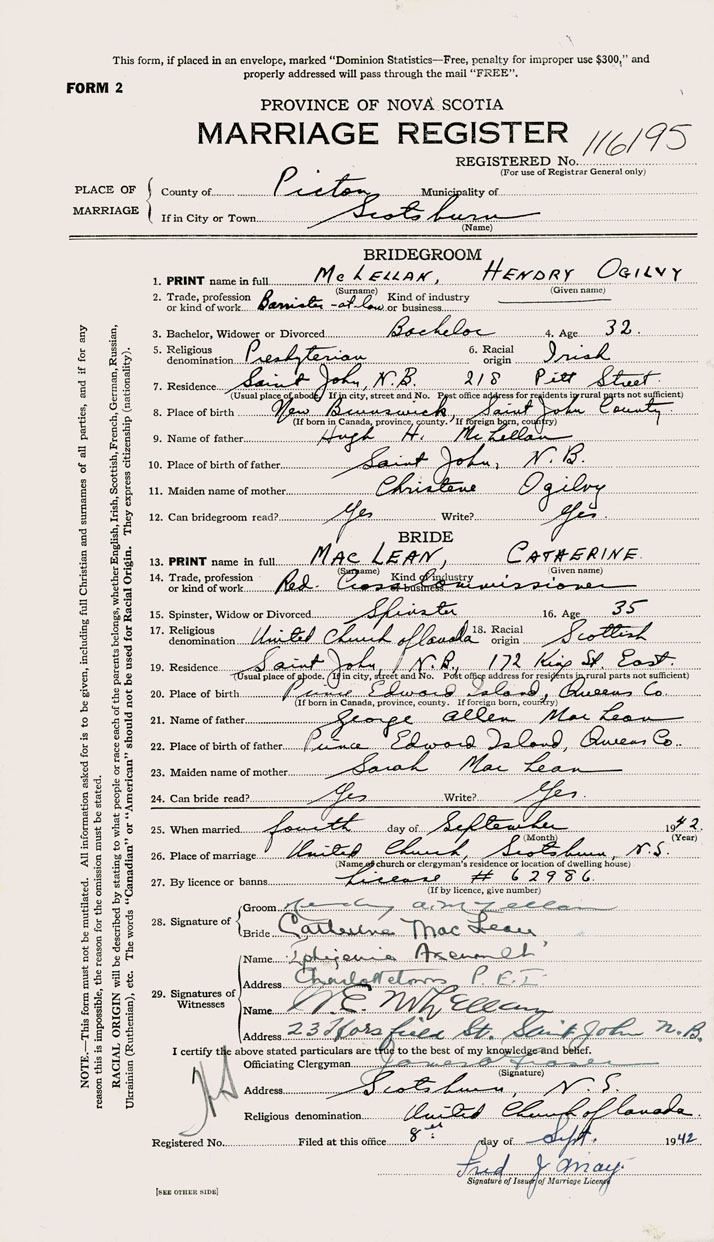 This form, if placed in an envelope, marked "Dominion Statistics—Free, penalty for improper use $300," and
properly addressed will pass through the mail "FREE".
FORM 2
PROVINCE OF NOVA SCOTIA
MARRIAGE REGISTER
116195
REGISTERED No.
(For use of Registrar General only)
PLACE OF MARRIAGE
County of Pictou Municipality of
If in City or Town Scotsburn
(Name)
BRIDEGROOM
1. PRINT name in full McLELLAN, HENDRY OGILVY
(Surname) (Given name)
2. Trade, profession or kind of work Barrister-at-law Kind of industry or business
3. Bachelor, Widower or Divorced Bachelor 4. Age 32.
5. Religious denomination Presbyterian 6. Racial origin Irish
7. Residence Saint John, N.B. 218 Pitt Street.
(Usual place of abode. If in city, street and No. Post office address for residents in rural parts not sufficient)
8. Place of birth New Brunswick, Saint John County
(If born in Canada, province, county. If foreign born, country)
9. Name of father Hugh H. McLellan
10. Place of birth of father Saint John, N.B.
11. Maiden name of mother Christene Ogilvy
12. Can bridegroom read? Yes Write? Yes.
BRIDE
13. PRINT name in full MAC LEAN, CATHERINE.
(Surname) (Given name)
14. Trade, profession or kind of work Red Cross Commissioner Kind of industry or business
15. Spinster, Widow or Divorced Spinster 16. Age 35
17. Religious denomination United Church of Canada 18. Racial origin Scottish
19. Residence Saint John, N.B., 172 King St. East.
(Usual place of abode. If in city, street and No. Post office address for residents in rural parts not sufficient)
20. Place of birth Prince Edward Island, Queens Co.
(If born in Canada, province, county. If foreign born, country)
21. Name of father George Allen MacLean
22. Place of birth of father Prince Edward Island, Queens Co.
23. Maiden name of mother Sarah MacLean
24. Can bride read? Yes Write? Yes.
25. When married fourth day of September 1942.
(Month) (Year)
26. Place of marriage United Church, Scotsburn, N.S.
(Name of church or clergyman's residence or location of dwelling house)
27. By licence or banns License # 62986.
(If by licence, give number)
28. Signature of
Groom
Bride Catherine MacLean
29. Signatures of Witnesses
Name Iphigenia
Address Charlottetown P.E.I.
Name
Address 23 Horsfield St. Saint John N.B.
I certify the above stated particulars are true to the best of my knowledge and belief.
Officiating Clergyman James Fraser
(Signature)
Address Scotsburn, N.S.
Religious denomination United Church of Canada.
Registered No. Filed at this office 8th day of Sept. 1942
Fred J May
Signature of Issuer of Marriage License
[SEE OTHER SIDE]
NOTE.—This form must not be mutilated. All information asked for is to be given, including full Christian and surnames of all parties, and if for any
reason this is impossible, the reason for the omission must be stated.
RACIAL ORIGIN will be described by stating to what people or race each of the parents belongs, whether English, Irish, Scottish, French, German, Russian,
Ukrainian (Ruthenian), etc. The words "Canadian" or "American" should not be used for Racial Origin. They express citizenship (nationality).